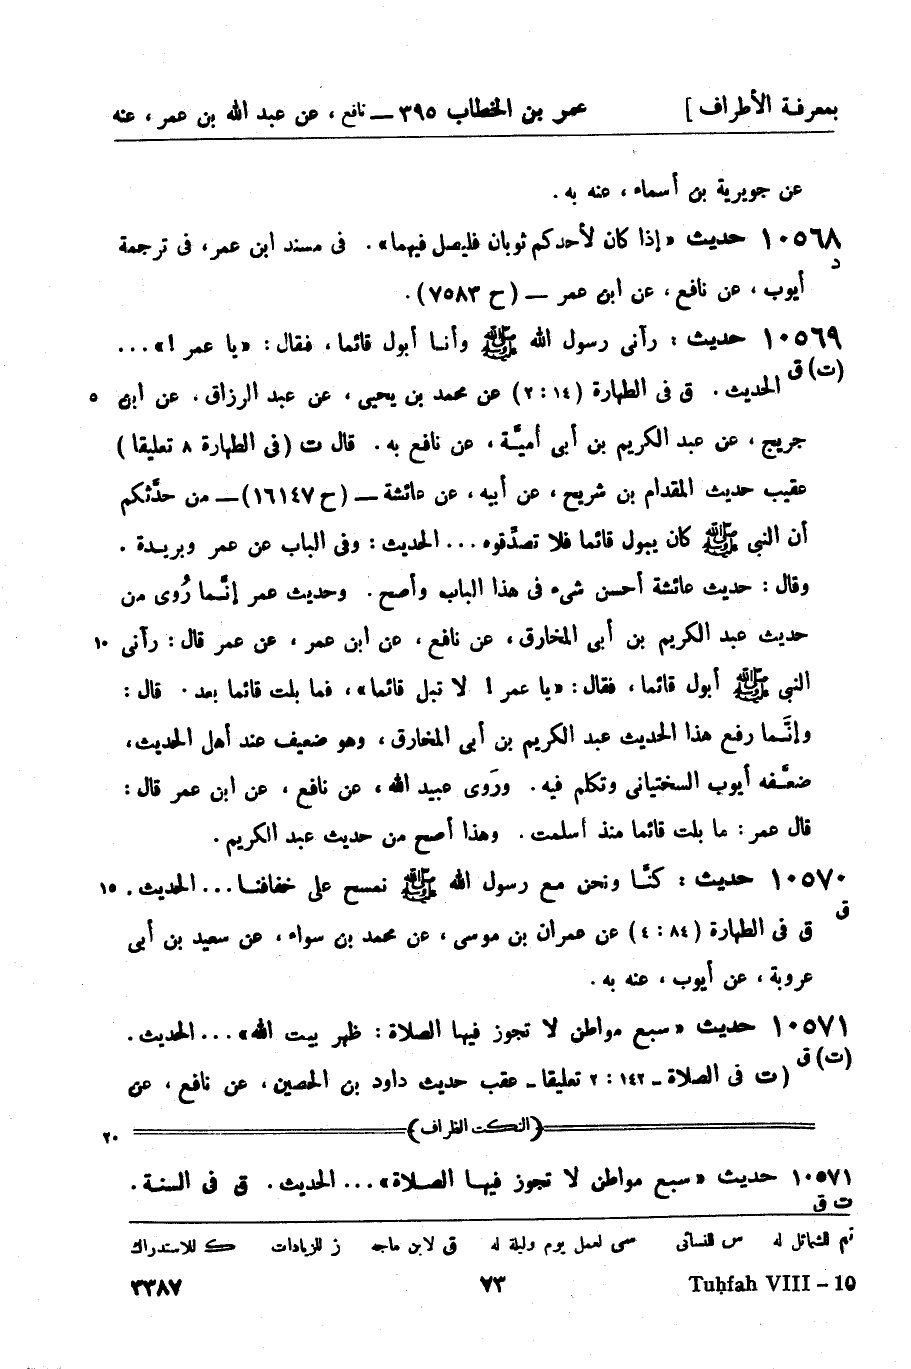 بمعرفة الأطراف ] عمر بن الخطاب ٣٩٥ — نافع ، عن عبد الله بن عمر ، عنه
عن جويرية بن أسماء ، عنه به .
١٠٥٦٨ حديث « إذا كان لأحدكم ثوبان فليصل فيهما» . فى مسند ابن عمر، فى ترجمة
د
أيوب ، عن نافع ، عن ابن عمر — (ح ٧٥٨٣) .
١٠٥٦٩ حديث : رآنى رسول الله ﷺ وأنـا أبول قائما ، فقال : «يا عمر !» ...
(ت) ق
الحديث . ق فى الطهارة (١٤ : ٢) عن محمد بن يحيى ، عن عبد الرزاق ، عن ابن ٥
جريج ، عن عبد الكريم بن أبى أميَّة ، عن نافع به . قال ت (فى الطهارة ٨ تعليقا )
عقيب حديث المقدام بن شريح ، عن أبيه ، عن عائشة — (ح ١٦١٤٧) — من حدَّثكم
أن النبى ﷺ كان يبول قائما فلا تصدَّقوه ... الحديث : وفى الباب عن عمر وبريـدة .
وقال : حديث عائشة أحسن شىء فى هذا الباب وأصح . وحديث عمر إنَّـما رُوى من
حديث عبد الكريم بن أبى المخارق ، عن نافع ، عن ابن عمر ، عن عمر قال : رآنى ١٠
النبى ﷺ أبول قائما ، فقال : «يا عمر ! لا تبل قائما» ، فما بلت قائما بعد . قال :
وإنَّـما رفع هذا الحديث عبد الكريم بن أبى المخارق ، وهو ضعيف عند أهل الحديث ،
ضعَّـفه أيوب السختيانى وتكلم فيه . ورَوى عبيد الله ، عن نافع ، عن ابن عمر قال :
قال عمر : ما بلت قائما منذ أسلمت . وهذا أصح من حديث عبد الكريم .
١٠٥٧٠ حديث : كنَّـا ونحن مـع رسول الله ﷺ نمسح على خفافنـا ... الحديث . ١٥
ق
ق فى الطهارة (٨٤ : ٤) عن عمران بن موسى ، عن محمد بن سواء ، عن سعيد بن أبى
عروبة ، عن أيوب ، عنه به .
١٠٥٧١ حديث « سبع مواطن لا تجوز فيها الصلاة : ظهر بيت الله» ... الحديث .
(ت) ق
(ت فى الصلاة ـ ١٤٢ : ٢ تعليقا ـ عقب حديث داود بن الحصين ، عن نافع ، عن
(النكت الظراف) ٢٠
١٠٥٧١ حديث « سبع مواطن لا تجوز فيهـا الصـلاة» ... الحديث . ق فى السنة .
ت ق
تم الشمائل له س للنسائى سى لعمل يوم وليلة له ق لابن ماجه ز للزيادات ك للاستدراك
Tuḥfah VIII – 10 ٧٣ ٣٣٨٧